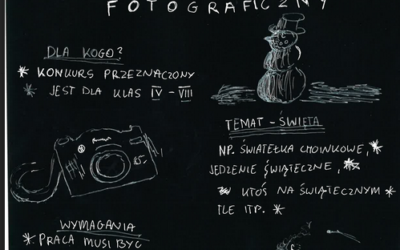 FOTOGRAFICZNY
DLA KOGO?
* KONKURS PRZEZNACZONY
* JEST DLA KLAS IV - VIII
TEMAT - ŚWIĘTA
NP. ŚWIATEŁKA CHOINKOWE,
JEDZENIE ŚWIĄTECZNE,
KTOŚ NA ŚWIĄTECZNYM
TLE ITP.
WYMAGANIA
* PRACA MUSI BYĆ